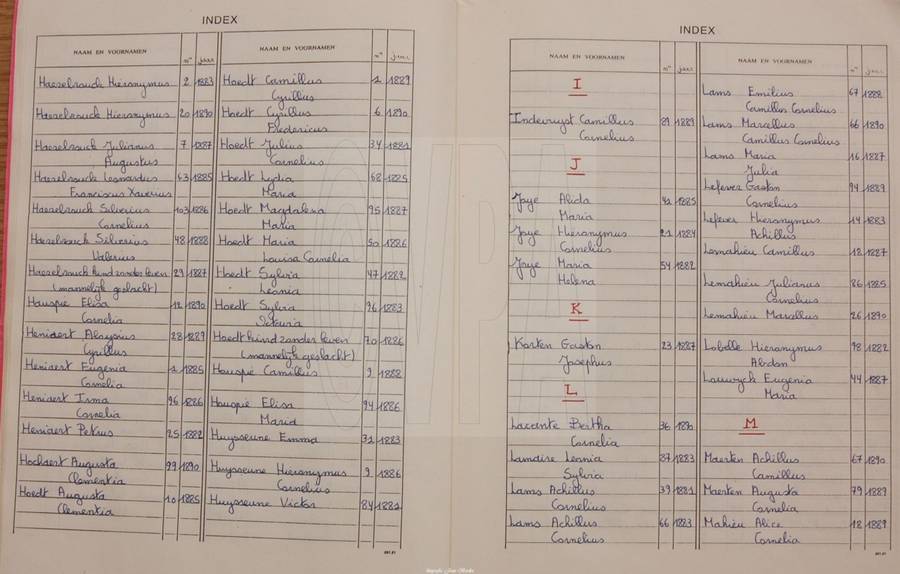 INDEX
NAAM EN VOORNAMEN n° jaar
Haeselrouck Hieronymus 2 1883
Haeselrouck Hieronymus 20 1890
Haeselrouck Julianus 7 1887
Augustus
Haeselrouck Leonardus 63 1885
Franciscus Xaverius
Haeselrouck Silverius 103 1886
Cornelius
Haeselrouck Silverius 48 1888
Valerius
Haeselrouck kind zonder leven 29 1887
(mannelijk geslacht)
Hauspie Elisa 12 1890
Cornelia
Heniaert Aloysius 28 1889
Cyrillus
Heniaert Eugenia 1 1885
Cornelia
Heniaert Irma 96 1886
Cornelia
Heniaert Petrus 25 1882
Hochaert Augusta 99 1890
Clementia
Hoedt Augusta 10 1885
Clementia
NAAM EN VOORNAMEN n° jaar
Hoedt Camillus 1 1889
Cyrillus
Hoedt Cyrillus 6 1890
Fledericus
Hoedt Julius 34 1881
Cornelius
Hoedt Lydia 68 1885
Maria
Hoedt Magdalena 95 1887
Maria
Hoedt Maria 50 1886
Louisa Cornelia
Hoedt Sylvia 47 1882
Leonia
Hoedt Sylvia 96 1883
Hoedt kind zonder leven 70 1886
(mannelijk geslacht)
Hauspie Camillus 9 1888
Hauspie Elisa 94 1886
Maria
Huysseune Emma 32 1883
Huysseune Hieronymus 9 1886
Cornelius
Huysseune Victor 84 1882
881.81
INDEX
NAAM EN VOORNAMEN n° jaar
I
Indevuyst Camillus 89 1889
Cornelius
J
Joye Alida 42 1885
Maria
Joye Hieronymus 21 1884
Cornelius
Joye Maria 54 1882
Helena
K
Korten Gaston 23 1887
Josephus
L
Lacante Bertha 36 1890
Cornelia
Lamaire Leonia 87 1883
Sylvia
Lams Achillus 39 1881
Cornelius
Lams Achillus 66 1883
Cornelius
NAAM EN VOORNAMEN n° jaar
Lams Emilius 67 1888
Camillus Cornelius
Lams Marcellus 66 1890
Camillus Cornelius
Lams Maria 16 1887
Julia
Lefever Gaston 94 1889
Cornelius
Lefever Hieronymus 14 1883
Achillus
Lemahieu Camillus 18 1887
Lemahieu Julianus 86 1885
Cornelius
Lemahieu Marcellus 26 1890
Lobelle Hieronymus 98 1882
Abdon
Louwyck Eugenia 44 1887
Maria
M
Maerten Achillus 67 1890
Camillus
Maerten Augusta 79 1889
Cornelia
Mahieu Alice 18 1889
Cornelia
881.81